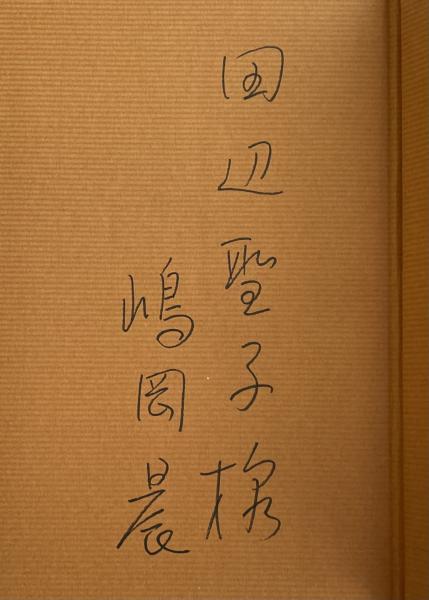 田辺聖子様
嶋岡晨